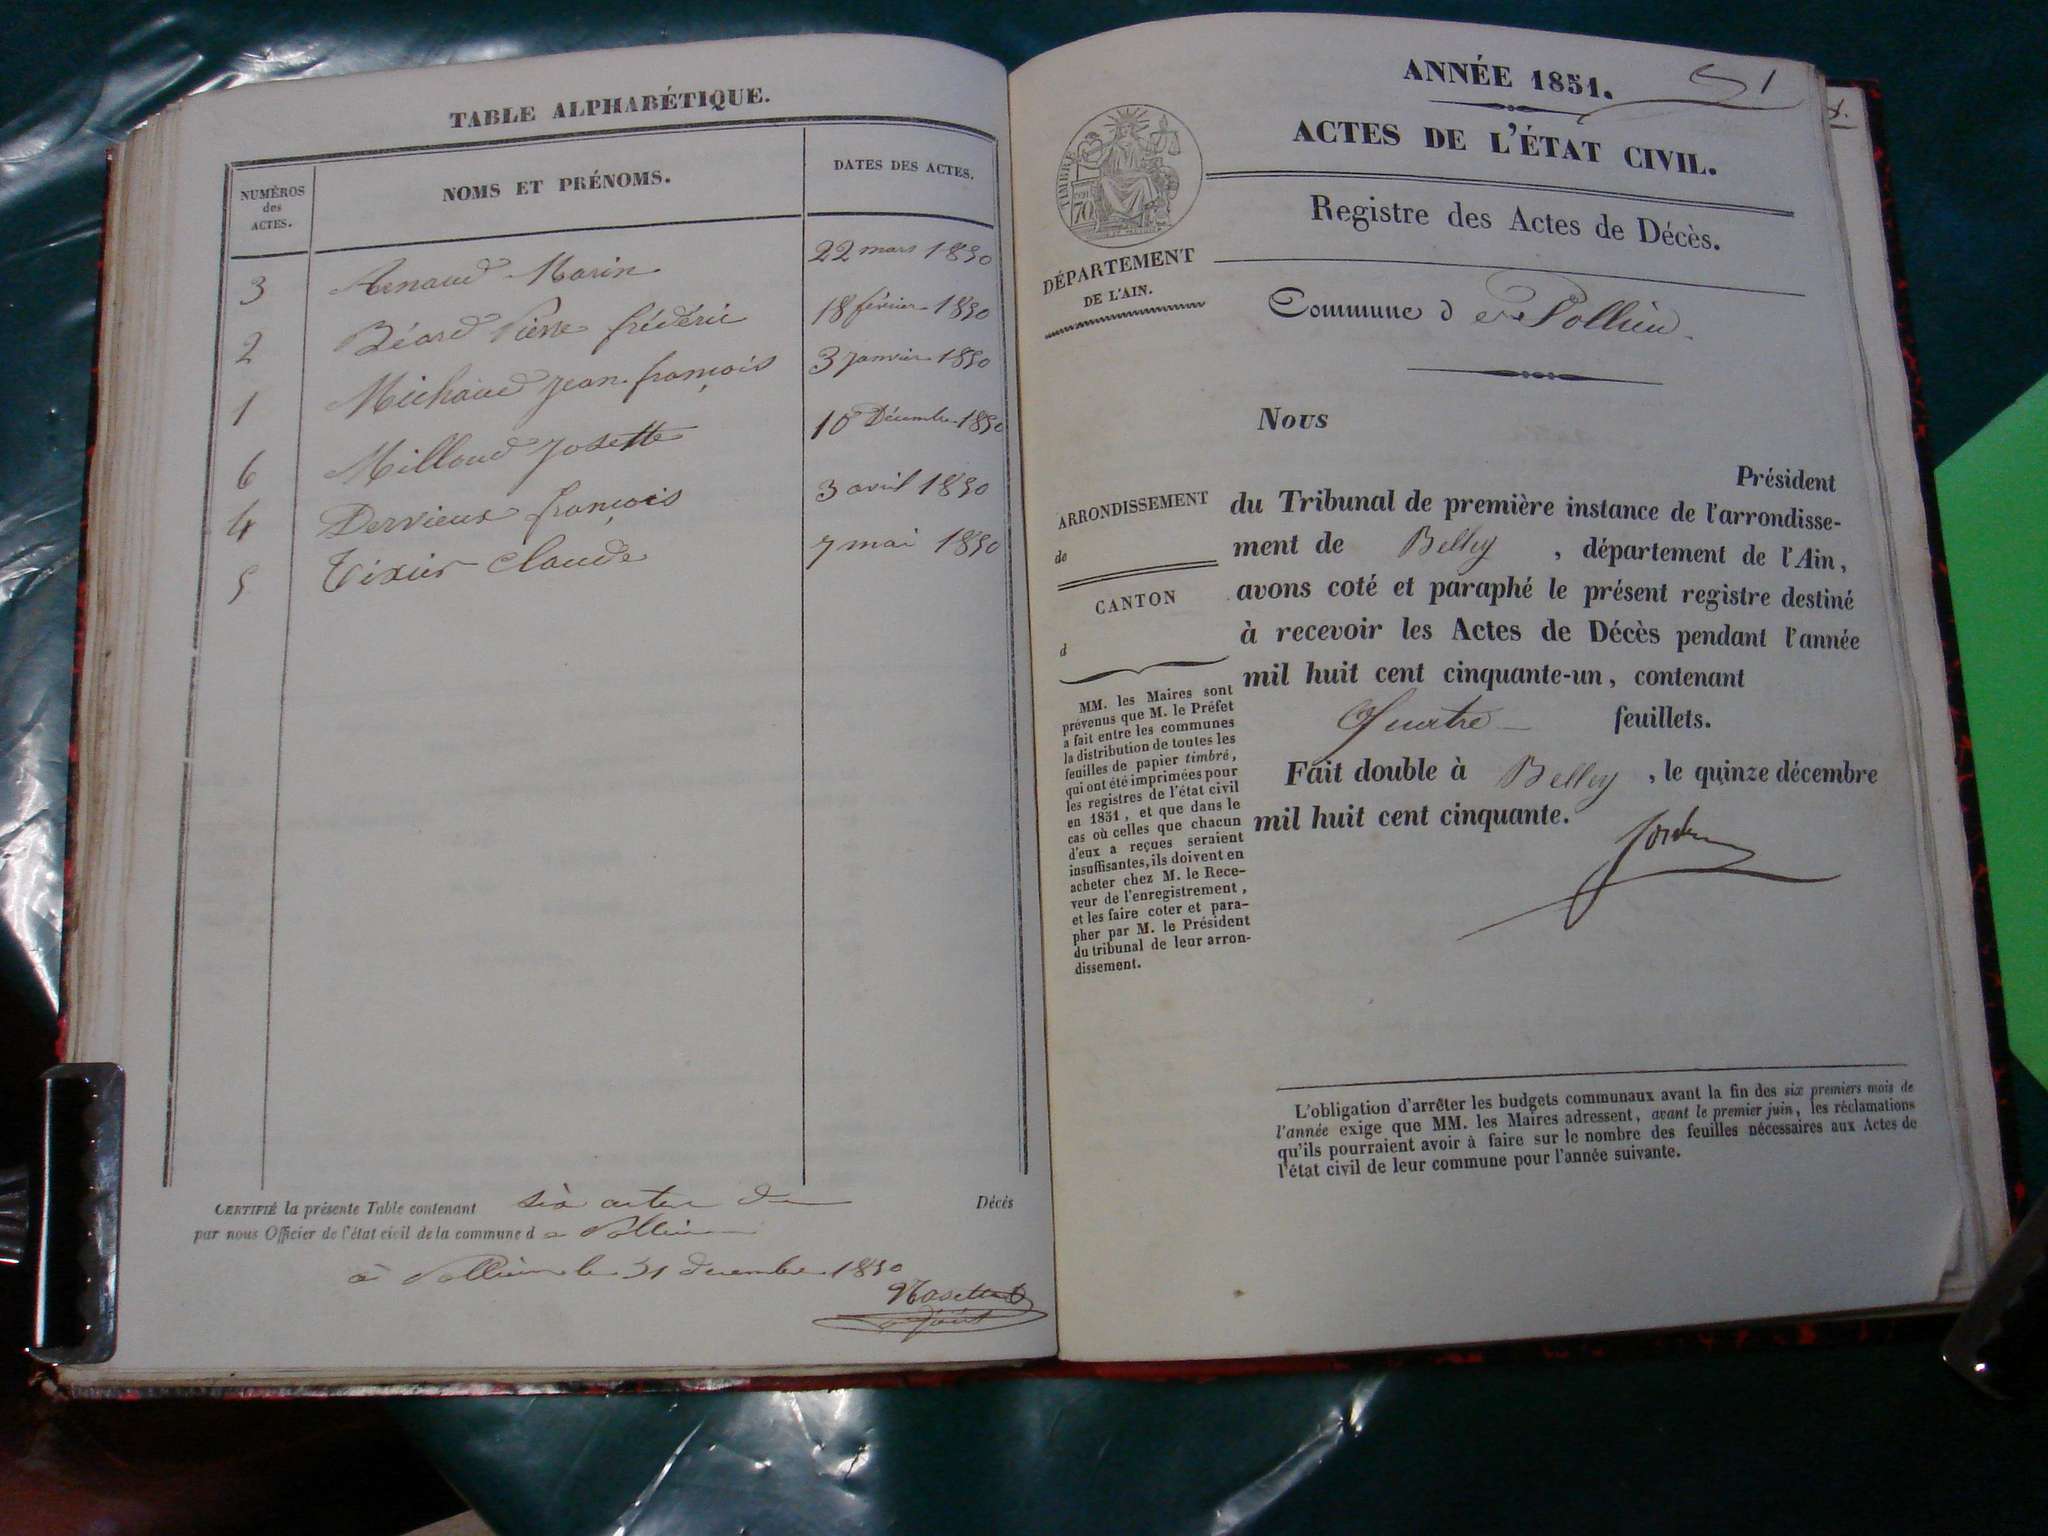 TABLE ALPHABÉTIQUE.
NUMÉROS des ACTES. NOMS ET PRÉNOMS. DATES DES ACTES.
3 Arnaud Marin 22 mars 1850
2 Béard Pierre frédéric 18 février 1850
1 Michaud Jean françois 3 Janvier 1850
6 Milloud Josette 10 Décembre 1850
4 Dervieux françois 3 avril 1850
5 Tixier Claude 7 mai 1850
CERTIFIÉ la présente Table contenant six actes de Décès
par nous Officier de l'état civil de la commune d e Pollieu
à Pollieu le 31 decembre 1850
adjoint
ANNÉE 1851.
1
ACTES DE L'ÉTAT CIVIL.
TIMBRE
70
Registre des Actes de Décès.
DÉPARTEMENT
DE L'AIN.
Commune d e Pollieu
Nous
Président
du Tribunal de première instance de l'arrondisse-
ment de Belley, département de l'Ain,
avons coté et paraphé le présent registre destiné
à recevoir les Actes de Décès pendant l'année
mil huit cent cinquante-un, contenant
Quatre feuillets.
Fait double à Belley, le quinze décembre
mil huit cent cinquante.
ARRONDISSEMENT
de
CANTON
d
MM. les Maires sont
prévenus que M. le Préfet
a fait entre les communes
la distribution de toutes les
feuilles de papier timbré,
qui ont été imprimées pour
les registres de l'état civil
en 1851, et que dans le
cas où celles que chacun
d'eux a reçues seraient
insuffisantes, ils doivent en
acheter chez M. le Rece-
veur de l'enregistrement,
et les faire coter et para-
pher par M. le Président
du tribunal de leur arron-
dissement.
L'obligation d'arrêter les budgets communaux avant la fin des six premiers mois de
l'année exige que MM. les Maires adressent, avant le premier juin, les réclamations
qu'ils pourraient avoir à faire sur le nombre des feuilles nécessaires aux Actes de
l'état civil de leur commune pour l'année suivante.